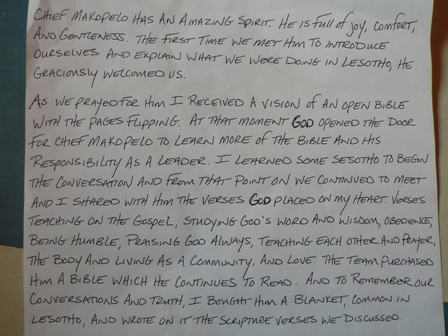 CHIEF MAKOPELO HAS AN AMAZING SPIRIT. HE IS FULL OF JOY, COMFORT,
AND GENTLENESS. THE FIRST TIME WE MET HIM TO INTRODUCE
OURSELVES AND EXPLAIN WHAT WE WERE DOING IN LESOTHO, HE
GRACIOUSLY WELCOMED US.
AS WE PRAYED FOR HIM I RECEIVED A VISION OF AN OPEN BIBLE
WITH THE PAGES FLIPPING. AT THAT MOMENT GOD OPENED THE DOOR
FOR CHIEF MAKOPELO TO LEARN MORE OF THE BIBLE AND HIS
RESPONSIBILITY AS A LEADER. I LEARNED SOME SESOTHO TO BEGIN
THE CONVERSATION AND FROM THAT POINT ON WE CONTINUED TO MEET
AND I SHARED WITH HIM THE VERSES GOD PLACED ON MY HEART. VERSES
TEACHING ON THE GOSPEL, STUDYING GOD'S WORD AND WISDOM, OBEDIENCE,
BEING HUMBLE, PRAISING GOD ALWAYS, TEACHING EACH OTHER AND PRAYER,
THE BODY AND LIVING AS A COMMUNITY, AND LOVE. THE TEAM PURCHASED
HIM A BIBLE WHICH HE CONTINUES TO READ. AND TO REMEMBER OUR
CONVERSATIONS AND TRUTH, I BOUGHT HIM A BLANKET, COMMON IN
LESOTHO, AND WROTE ON IT THE SCRIPTURE VERSES WE DISCUSSED.